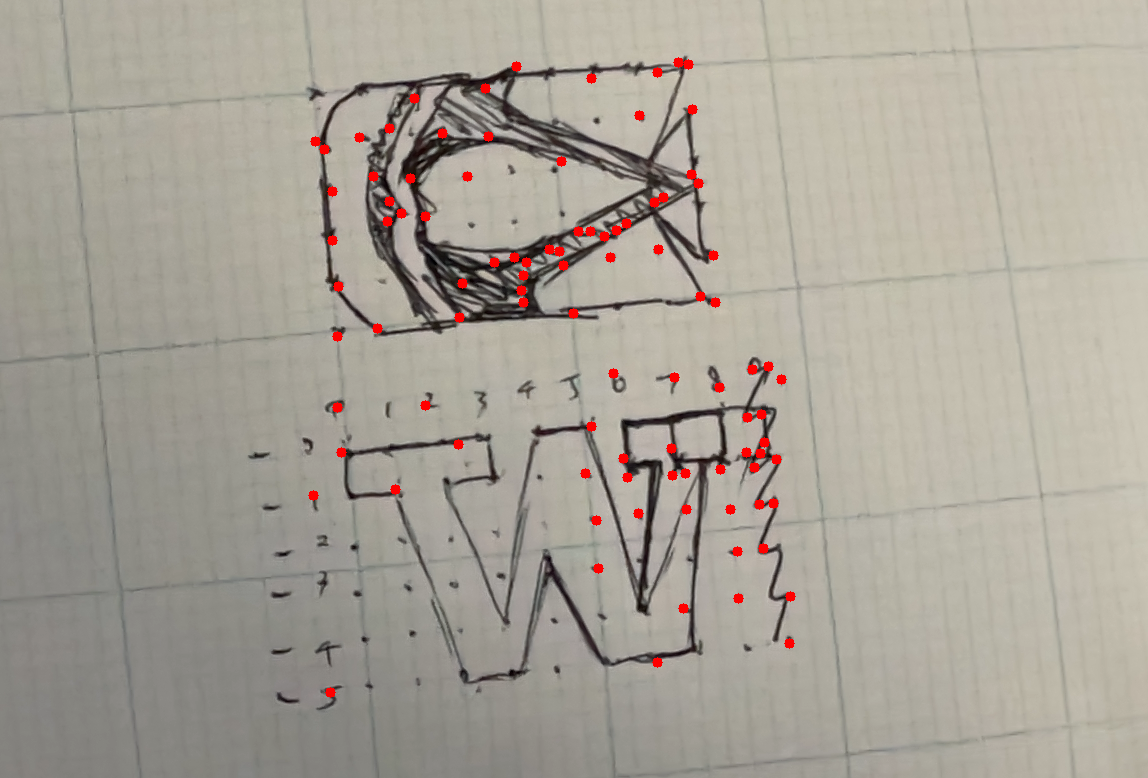 0 1 2 3 4 5 6 7 8 9
- 0
- 1
- 2
- 3
- 4
- 5
W